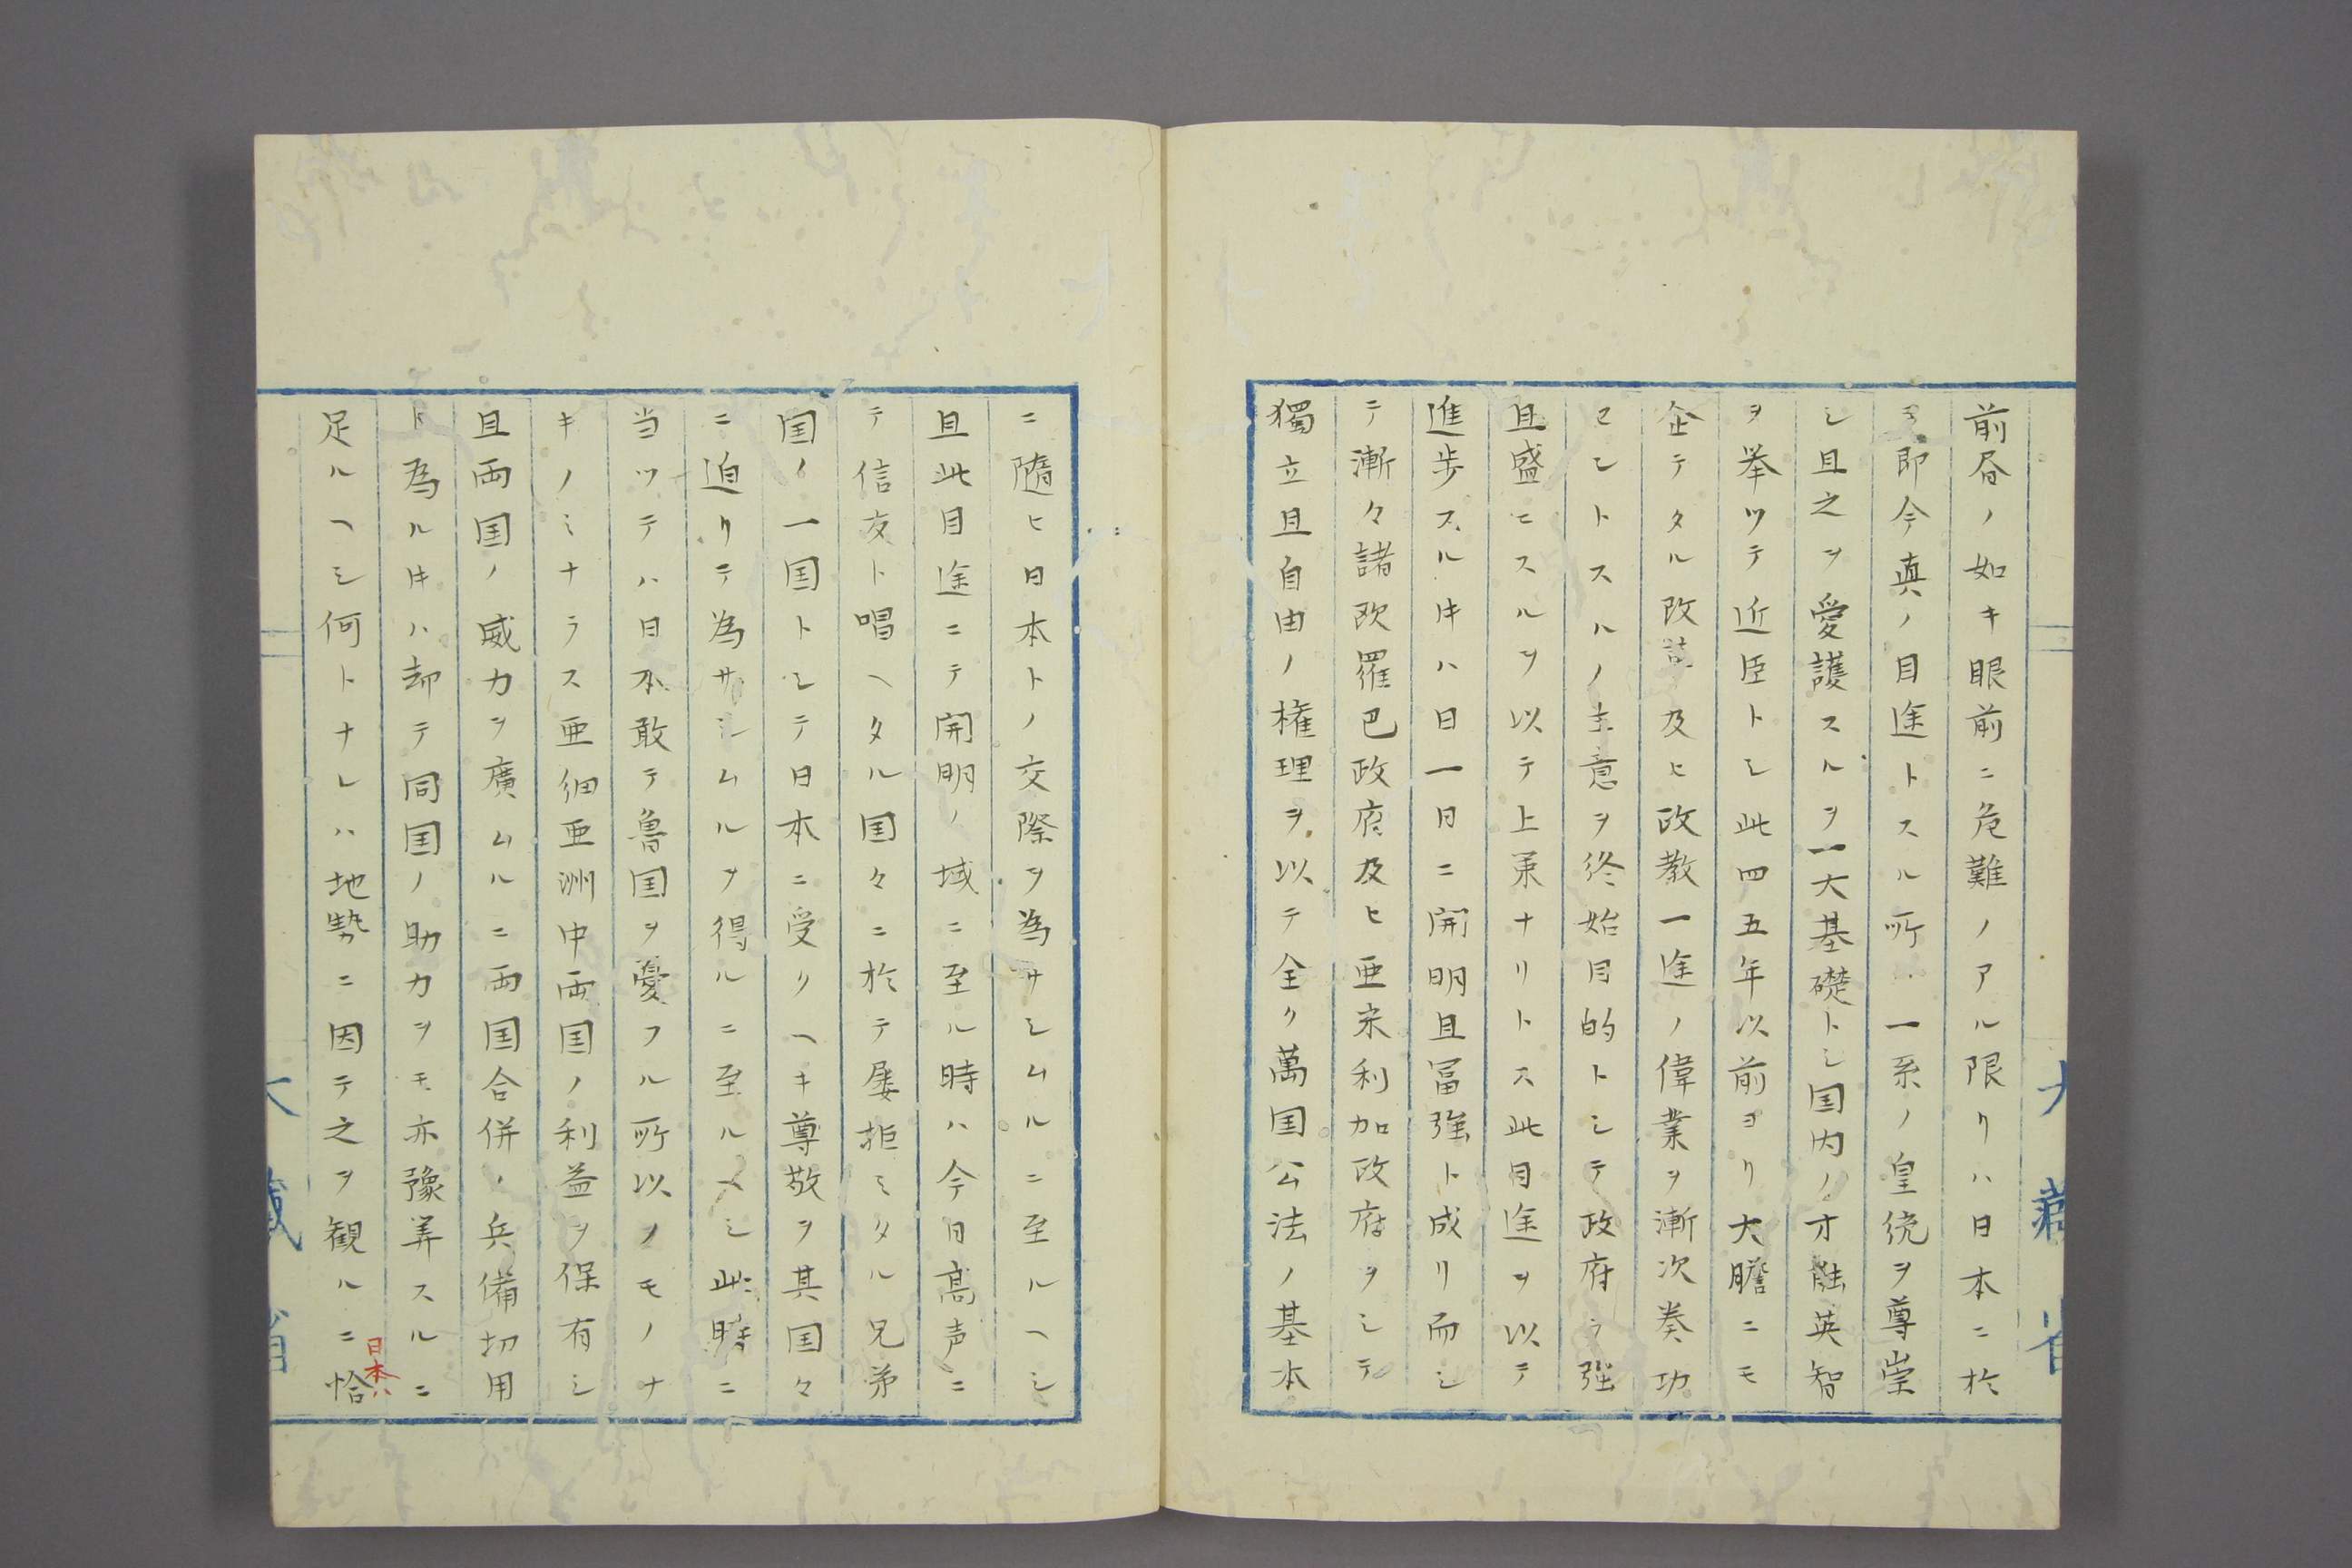 前層ノ如キ眼前ニ危難ノアル限リハ日本ニ於
テ即今真ノ目途トスル所ハ一系ノ皇統ヲ尊崇
シ且之ヲ愛護スルヲ一大基礎トシ国内ノ才能英智
ヲ挙ツテ近臣トシ此四五年以前ヨリ大膽ニモ
企テタル改誌及ヒ政教一途ノ偉業ヲ漸次奏功
セントスルノ主意ヲ終始目的トシテ政府ヲ強
且盛ニスルヲ以テ上策ナリトス此目途ヲ以テ
進歩スル时ハ日一日ニ開明且冨強ト成リ而シ
テ漸々諸欧羅巴政府及ヒ亜米利加政府ヲシテ
獨立且自由ノ権理ヲ以テ全ク萬国公法ノ基本
ニ随ヒ日本トノ交際ヲ為サシムルニ至ルヘシ
且此目途ニテ開明ノ域ニ至ル時ハ今日高声ニ
テ信友ト唱ヘタル国々ニ於テ屡拒ミタル兄弟
国ノ一国トシテ日本ニ受リヘキ尊敬ヲ其国々
ニ迫リテ為サシムルヲ得ルニ至ルヘシ此時ニ
当ツテハ日本敢テ魯国ヲ憂フル所以ノモノナ
キノミナラス亜細亜洲中両国ノ利益ヲ保有シ
且両国ノ威力ヲ廣ムルニ両国合併ノ兵備切用
ト為ル时ハ却テ同国ノ助力ヲモ亦豫筭スルニ
足ルヘシ何トナレハ地勢ニ因テ之ヲ観ルニ恰
日本ハ
大藏省
大藏省